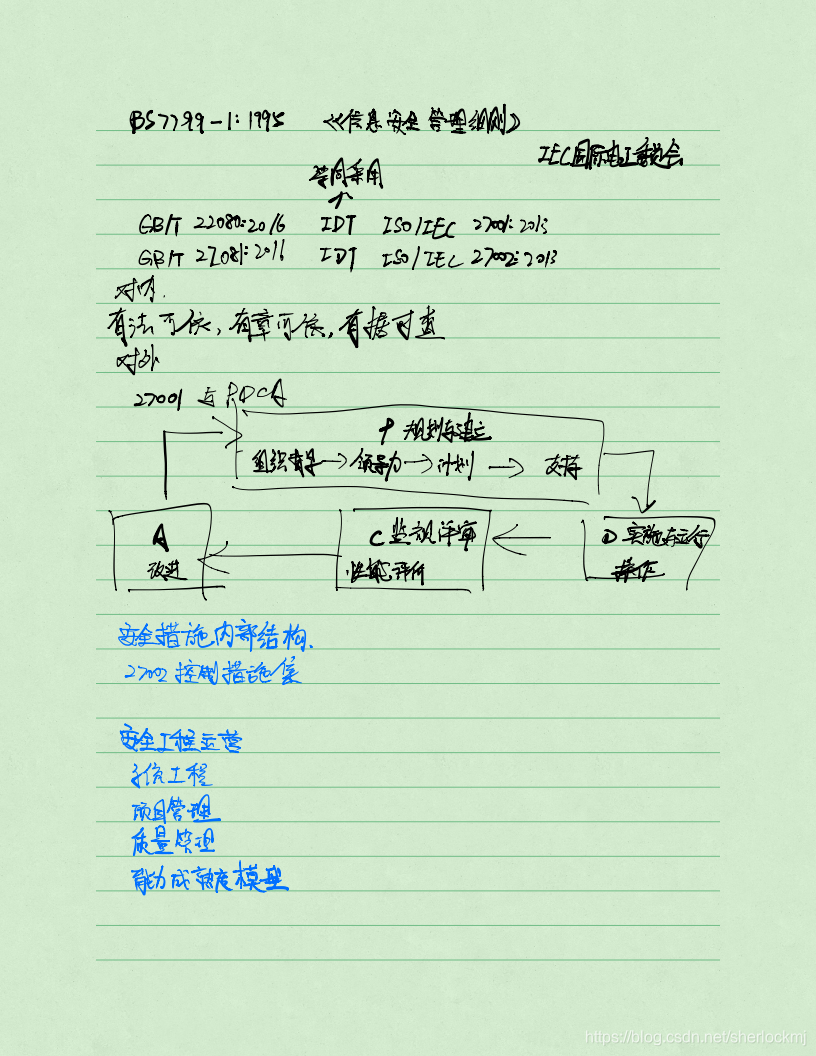 BS7799-1:1995 《信息安全管理细则》
IEC国际电工委员会
等同采用
GB/T 22080:2016 IDT ISO/IEC 27001:2013
GB/T 22081:2016 IDT ISO/IEC 27002:2013
对内.
有法可依,有章可依,有据可查
对外
27001 与 PDCA
P 规划与建立
组织背景 → 领导力 → 计划 → 支持
A
改进
C 监视评审
性能评价
D 实施与运行
操作
安全措施内部结构.
27002 控制措施集
安全工程运营
系统工程
项目管理
质量管理
能力成熟度模型
https://blog.csdn.net/sherlockmj